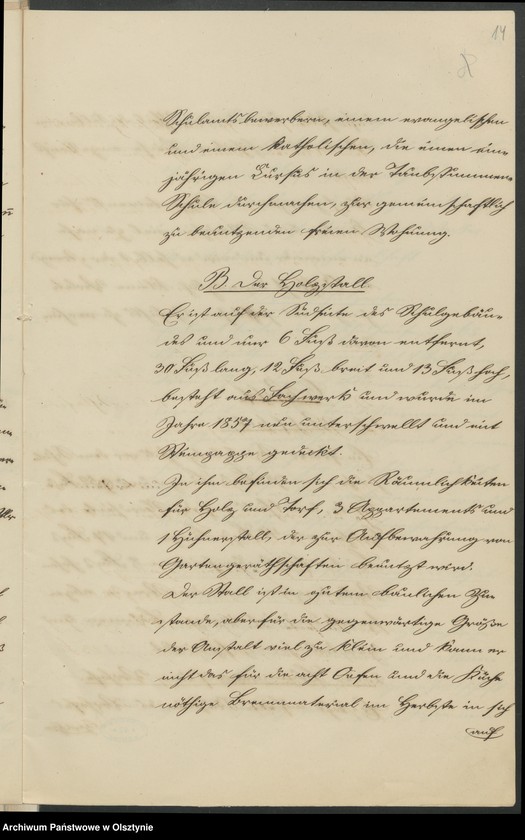 14
Schulamtsbewerbern, einem evangelischen
und einem katholischen, die einen ein-
jährigen Cursus in der Taubstummen-
Schule durchmachen, zur gemeinschaftlich
zu benutzenden freien Wohnung.
B Der Holzstall.
Er ist auf der Südseite des Schulgebäu-
des und nur 6 Fuß davon entfernt,
30 Fuß lang, 12 Fuß breit und 13 Fuß hoch,
besteht aus Fachwerk und wurde im
Jahre 1857 neu unterschwellt und mit
Steinpappe gedeckt.
In ihm befinden sich die Räumlichkeiten
für Holz und Torf, 3 Appartements und
1 Hühnerstall, der zur Aufbewahrung von
Gartengeräthschaften benutzt wird.
Der Stall ist in gutem baulichen Zu-
stande, aber für die gegenwärtige Größe
der Anstalt viel zu klein und kann er
nicht das für die acht Oefen und die Küche
nöthige Brennmaterial im Herbste in sich
auf
Archiwum Państwowe w Olsztynie